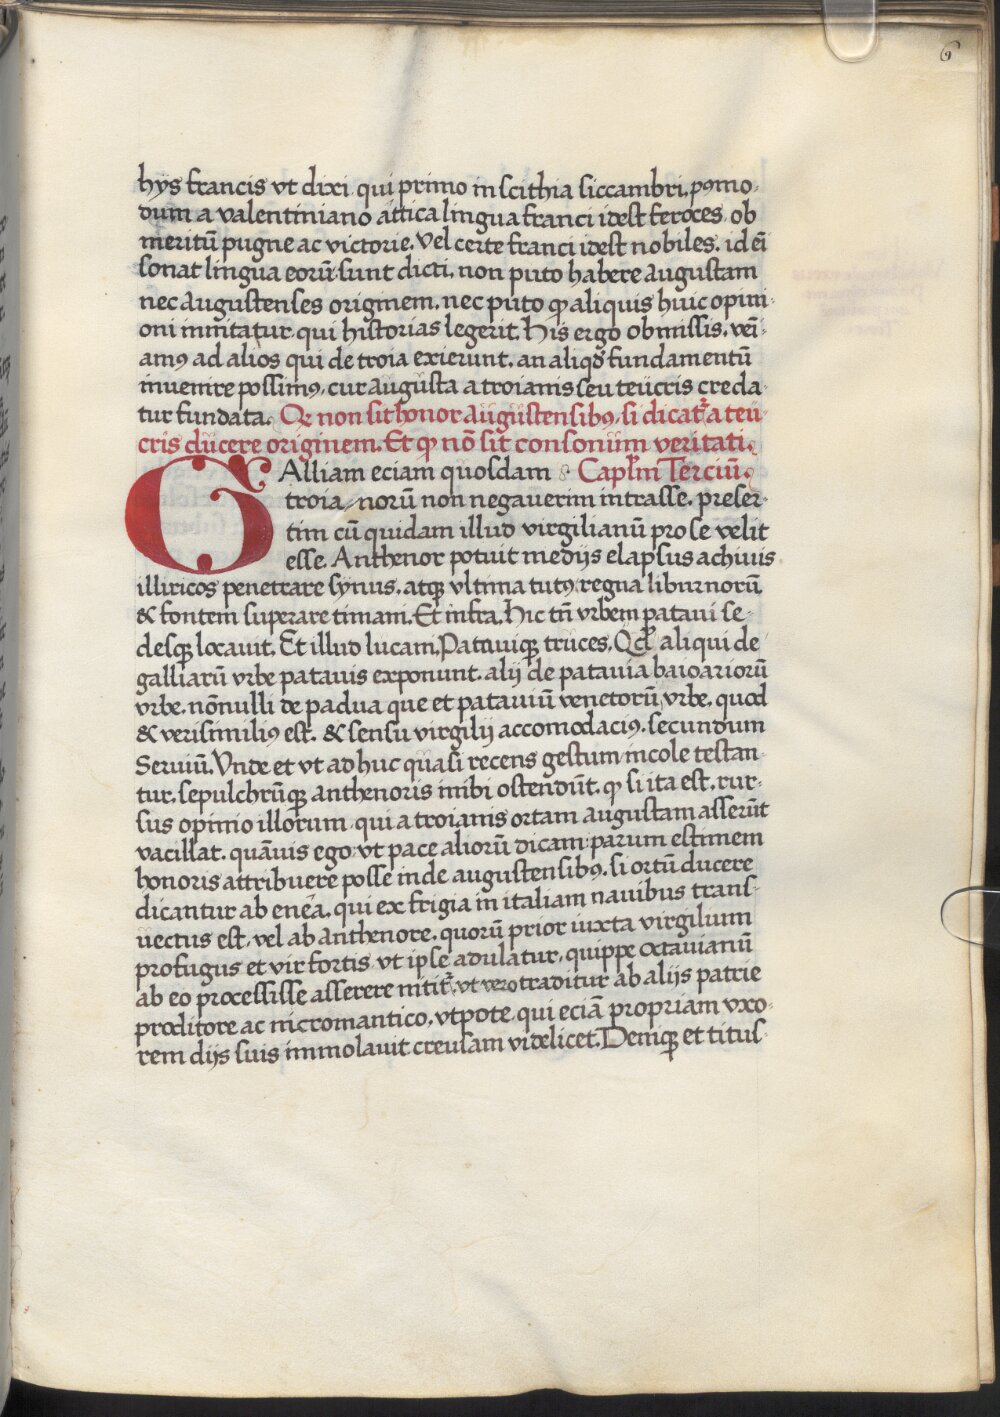 6
hys francis vt dixi qui primo in scithia siccambri, pꝰmo-
dum a valentiniano attica lingua franci idest feroces ob
meritū pugne ac victorie. Vel certe franci idest nobiles. id ei̅
sonat lingua eorū sunt dicti. non puto habere augustam
nec augustenses originem. nec puto ꝙ aliquis huic opini-
oni innitatur. qui historias legerit. His ergo obmissis. veni-
amꝰ ad alios qui de troia exierunt. an aliqō fundamentū
inuenire possimꝰ, cur augusta a troianis seu teucris creda-
tur fundata. Qꝛ non sit honor augustensibꝰ, si dicatꝛ a teu-
cris ducere originem. Et ꝙ nō sit consonum veritati.
GAlliam eciam quosdam Caplm̄ Terciū.
troia-norū non negauerim intrasse. preser-
tim cū quidam illud virgilianū pro se velit
esse. Anthenor potuit medijs elapsus achiuis
illiricos penetrare synus. atqꝫ vltima tutꝰ regna liburnorū
& fontem superare timani. Et infra. Hic tn̄ vrbem pataui se-
desqꝫ locauit. Et illud lucam, Patauiqꝫ truces. Qd̄ aliqui de
galliarū vrbe patauis exponunt. alij de patauia baioariorū
vrbe. nōnulli de padua que et patauiū venetorū vrbe. quod
& verisimiliꝰ est. & sensu virgilij accomodaciꝰ. secundum
Seruiū. Vnde et vt ad huc quasi recens gestum incole testan-
tur. sepulchrūqꝫ anthenoris inibi ostendūt. ꝙ si ita est. rur-
sus opinio illorum qui a troianis ortam augustam asserūt
vacillat. quāuis ego vt pace aliorū dicam parum estimem
honoris attribuere posse inde augustensibꝰ. si ortū ducere
dicantur ab enea. qui ex frigia in italiam nauibus trans-
uectus est. vel ab anthenore. quorū prior iuxta virgilium
profugus et vir fortis vt ipse adulatur. quippe octauianū
ab eo processisse asserere nititꝛ. vt vero traditur ab alijs patrie
proditore ac nicromantico. vtpote qui eciā propriam vxo-
rem dijs suis immolauit creusam videlicet. Deniqꝫ et titus-